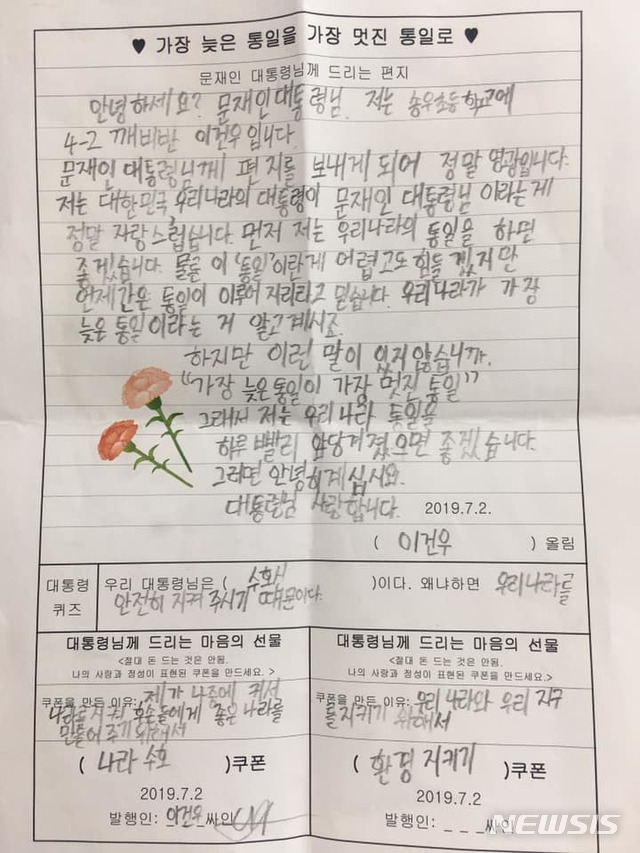 ♥ 가장 늦은 통일을 가장 멋진 통일로 ♥
문재인 대통령님께 드리는 편지
안녕하세요? 문재인대통령님. 저는 송우초등학교에
4-2 깨비반 이건우입니다.
문재인 대통령님께 편지를 보내게 되어 정말 영광입니다.
저는 대한민국 우리나라의 대통령이 문재인 대통령님 이라는게
정말 자랑스럽습니다. 먼저 저는 우리나라의 통일을 하면
좋겠습니다. 물론 이 '통일'이란게 어렵고도 힘들겠지만
언제간은 통일이 이루어지리라고 믿습니다. 우리나라가 가장
늦은 통일이라는 거 알고계시죠.
하지만 이런 말이 있지않습니까.
"가장 늦은통일이 가장 멋진 통일"
그래서 저는 우리나라 통일을
하루 빨리 앞당겨졌으면 좋겠습니다.
그러면 안녕히계십시요.
대통령님 사랑합니다. 2019.7.2.
( 이건우 ) 올림
대통령
퀴즈
우리 대통령님은 ( 수호신 )이다. 왜냐하면 우리나라를
안전히 지켜 주시기 때문이다.
대통령님께 드리는 마음의 선물
<절대 돈 드는 것은 안됨.
나의 사랑과 정성이 표현된 쿠폰을 만드세요.>
쿠폰을 만든 이유: 제가 나중에 커서
나라를 지켜 후손들에게 좋은 나라를
만들어 주기 위해서
( 나라 수호 )쿠폰
2019.7.2
발행인: 이건우 싸인
대통령님께 드리는 마음의 선물
<절대 돈 드는 것은 안됨.
나의 사랑과 정성이 표현된 쿠폰을 만드세요.>
쿠폰을 만든 이유: 우리 나라와 우리 지구
를지키기 위해서
( 환경 지키기 )쿠폰
2019.7.2
발행인: _ _ _싸인
NEWSIS